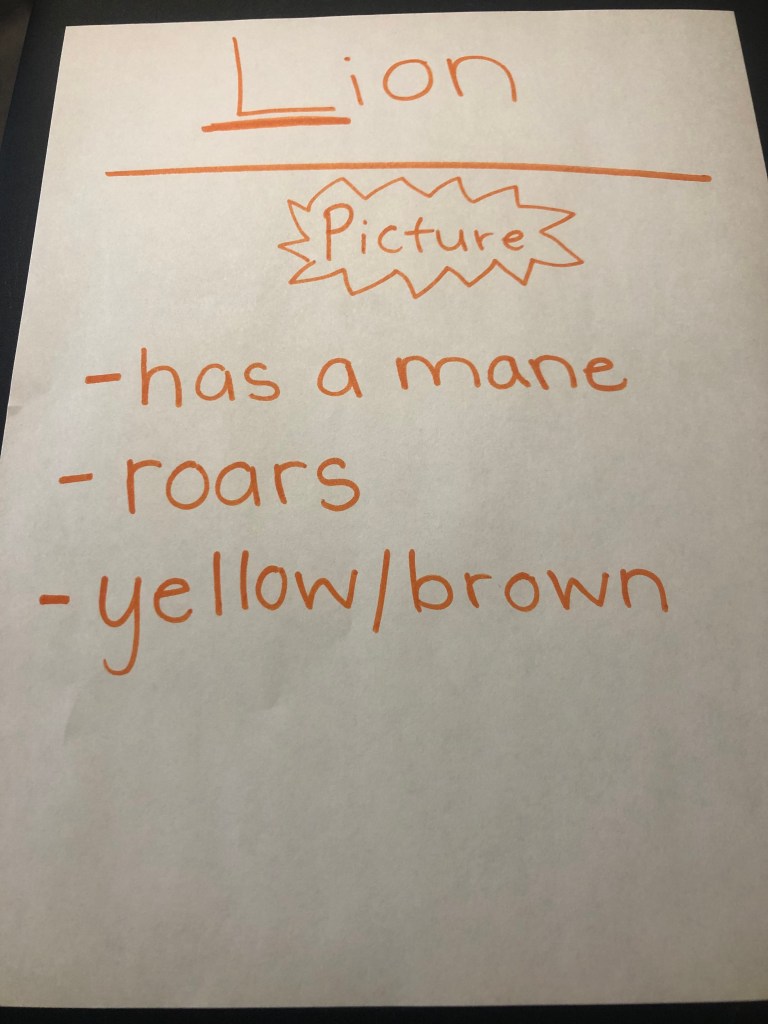 Lion
Picture
- has a mane
- roars
- yellow/brown